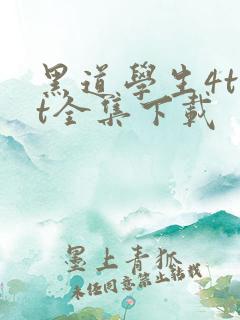 黑道學生4t
t全集下載
墨上青狐
未经同意禁止转载